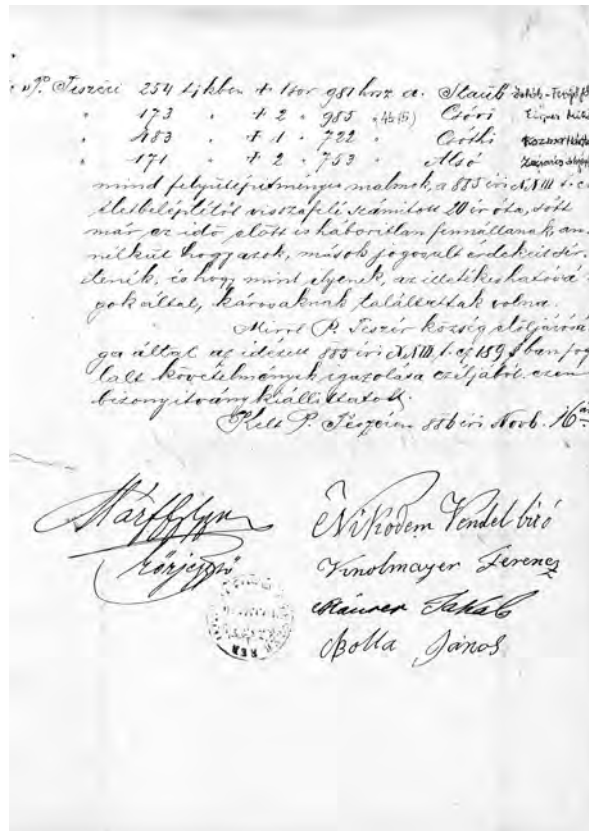 P. Teszéri 254 tjkben † 1 sor 981 hrsz a. Staub
" 173 " † 2 " 985 " Csóri
" 483 " † 1 " 722 " Csóthi
" 171 " † 2 " 753 " Alsó
mind felyülépítményes malmok, a 885 évi XXIII t. cz
életbeléptétől visszafelé számított 20 év óta, sőt
már az idő előtt is háborítlan fennállanak, an
nélkül hogy azok, mások jogosult érdekeit sér
tenék, és hogy mint ilyenek, az illetékes hatósá
gok által, károsaknak találtattak volna.
Miről P. Teszér község elöljárósá
ga által az idézett 885 évi XXIII. t. cz 189 § ban fog
lalt követelmények igazolása czéljából ezen
bizonyítvány kiállíttatott.
Kelt P. Teszéren 885 évi Novb. 16
körjegyző
Nikodem Vendel bíró
Knolmayer Ferencz
Maurer Jakab
Bolla János